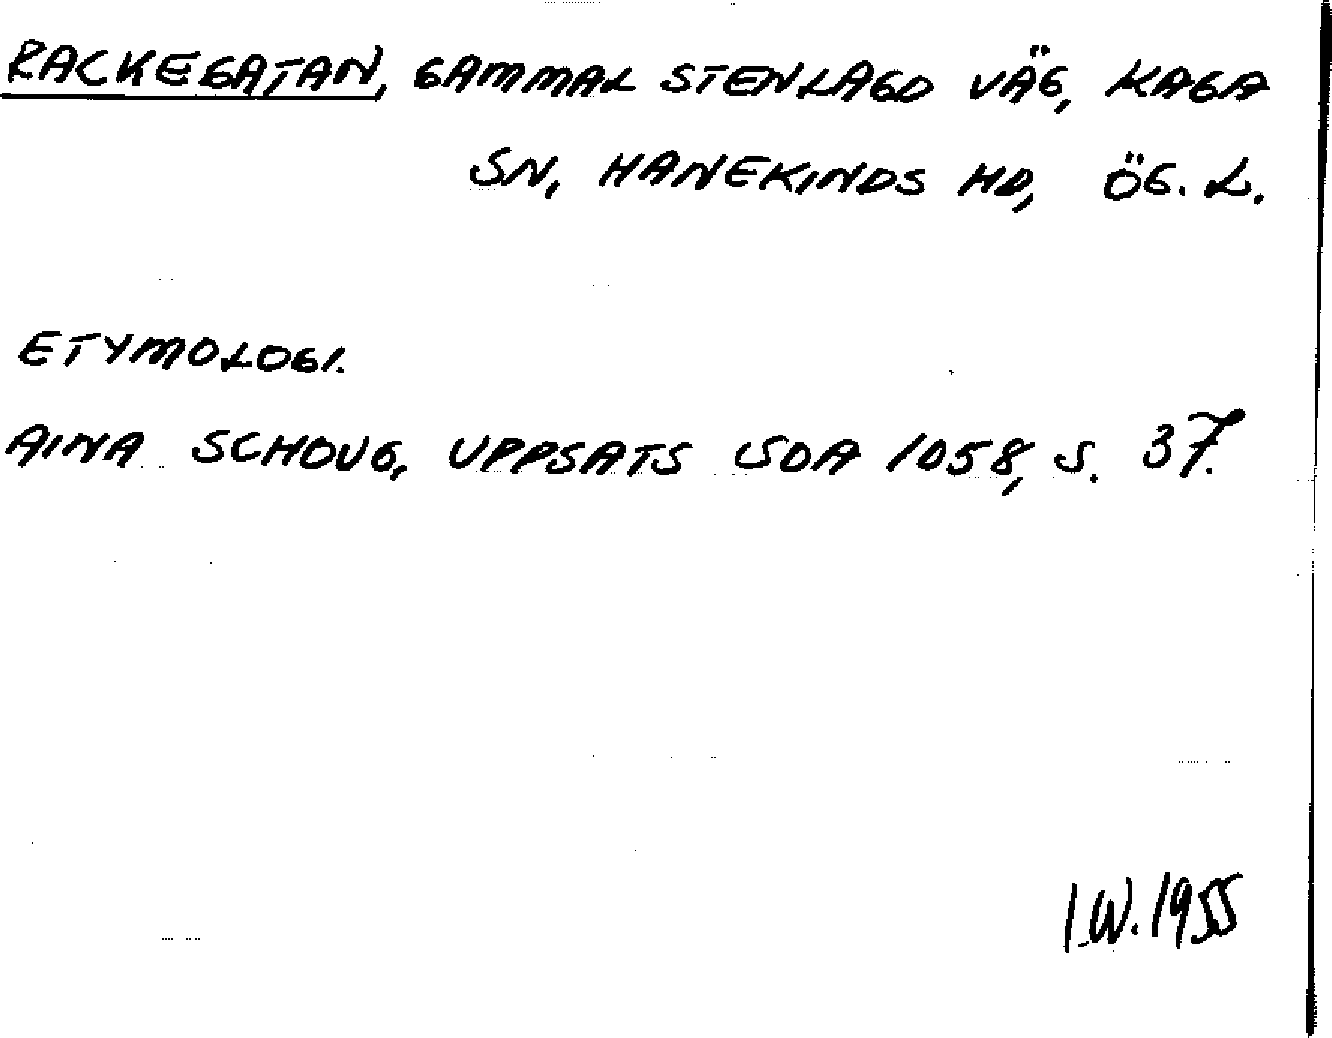 RACKEGATAN, GAMMAL STENLAGD VÄG, KAGA
SN, HANEKINDS HD, ÖG. L.
ETYMOLOGI.
AINA SCHOUG, UPPSATS SOA 1058, S. 37.
I.W. 1955